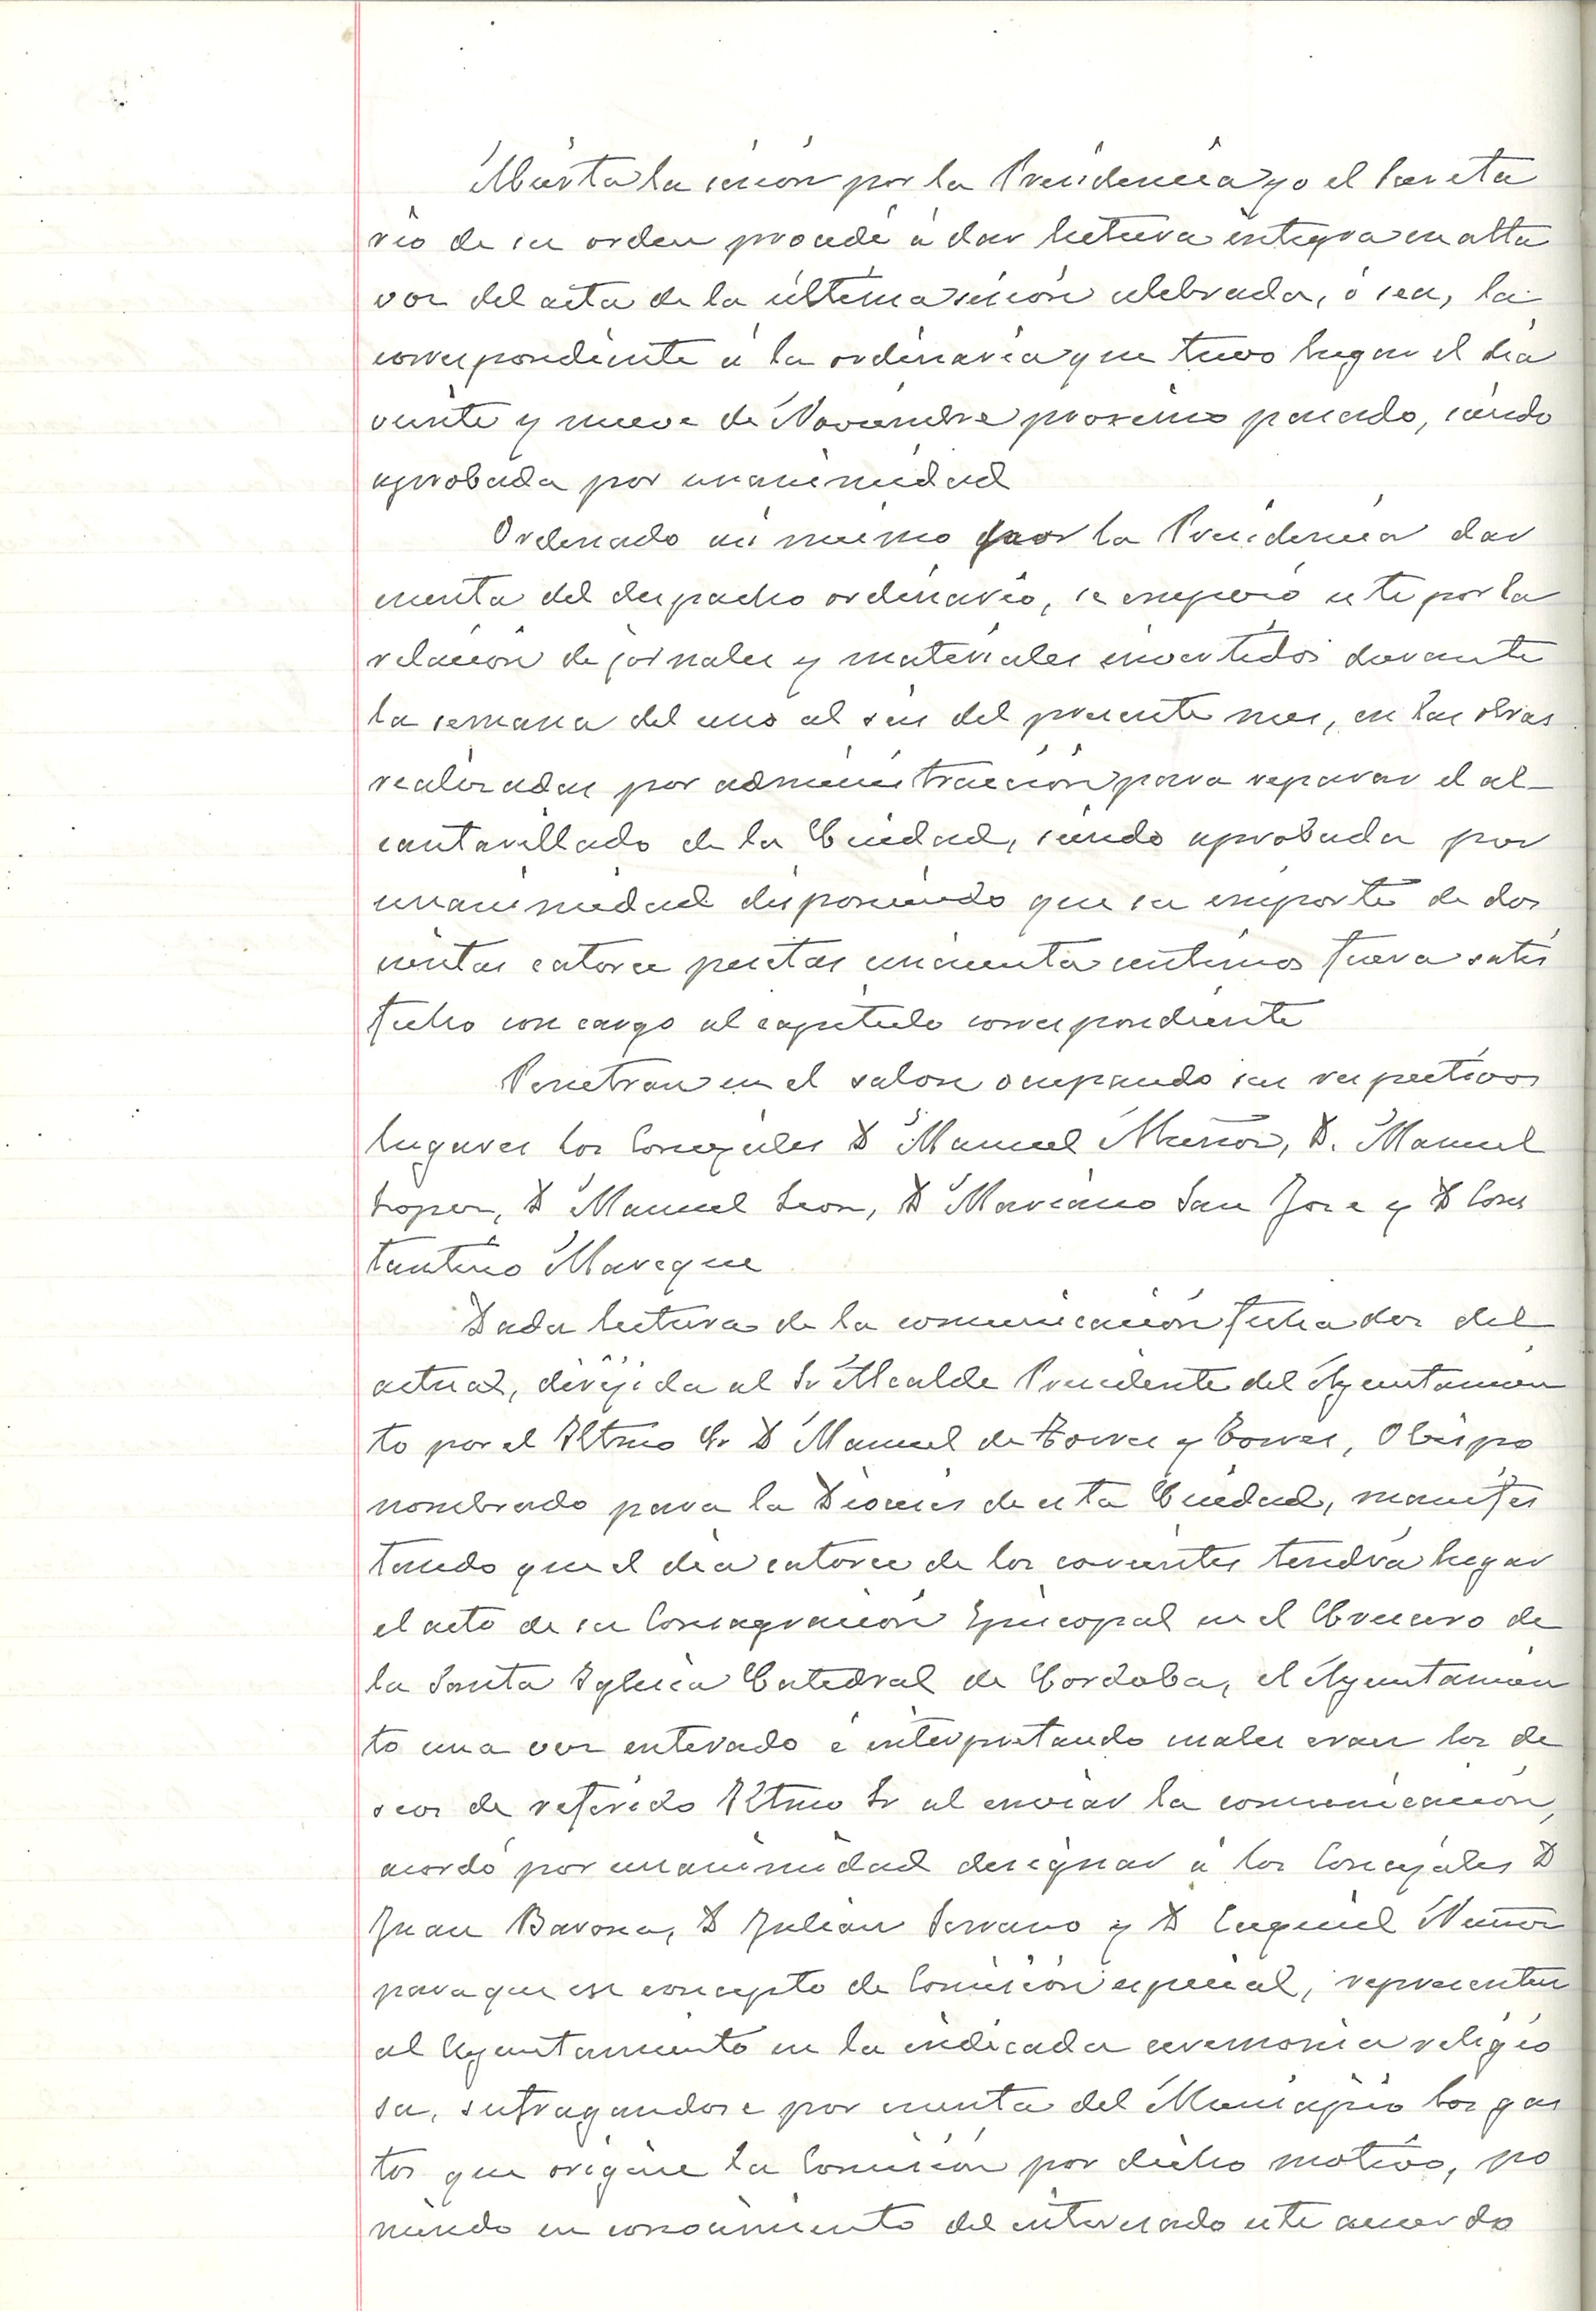 Abierta la sesión por la Presidencia yo el Secreta
rio de su orden procedí á dar lectura íntegra en alta
voz del acta de la última sesión celebrada, ó sea, la
correspondiente á la ordinaria que tuvo lugar el día
veinte y nueve de Noviembre proximo pasado, siendo
aprobada por unanimidad
Ordenado asi mismo por la Presidencia dar
cuenta del despacho ordinario, se empezó este por la
relación de jornales y materiales invertidos durante
la semana del uno al seis del presente mes, en las obras
realizadas por administracción para reparar el al-
cantarillado de la Ciudad, siendo aprobada por
unanimidad disponiendo que su importe de dos
cientas catorce pesetas cincuenta centimos fuera satis
fecho con cargo al capitulo correspondiente
Penetran en el salon ocupando sus respectivos
lugares los Concejales D Manuel Muñoz, D. Manuel
Lopez, D Manuel Leon, D Mariano San Jose y D Cons
tantino Mareque
Dada lectura de la comunicación fecha dos del
actual, dirijida al Sr Alcalde Presidente del Ayuntamien
to por el Iltmo Sr D Manuel de Torres y Torres, Obispo
nombrado para la Diocesis de esta Ciudad, manifes
tando que el dia catorce de los corrientes tendrá lugar
el acto de su Consagración Episcopal en el Crucero de
la Santa Iglesia Catedral de Cordoba, el Ayuntamien
to una vez enterado é interpretando cuales eran los de
seos de referido Iltmo Sr al enviar la comunicación,
acordó por unanimidad designar á los Concejales D
Juan Barona, D Julian Serrano y D Ezequiel Nuñez
para que en concepto de Comisión especial, representen
al Ayuntamiento en la indicada ceremonia religio
sa, sufragandose por cuenta del Municipio los gas
tos que origine la Comisión por dicho motivo, po
niendo en conocimiento del interesado este acuerdo